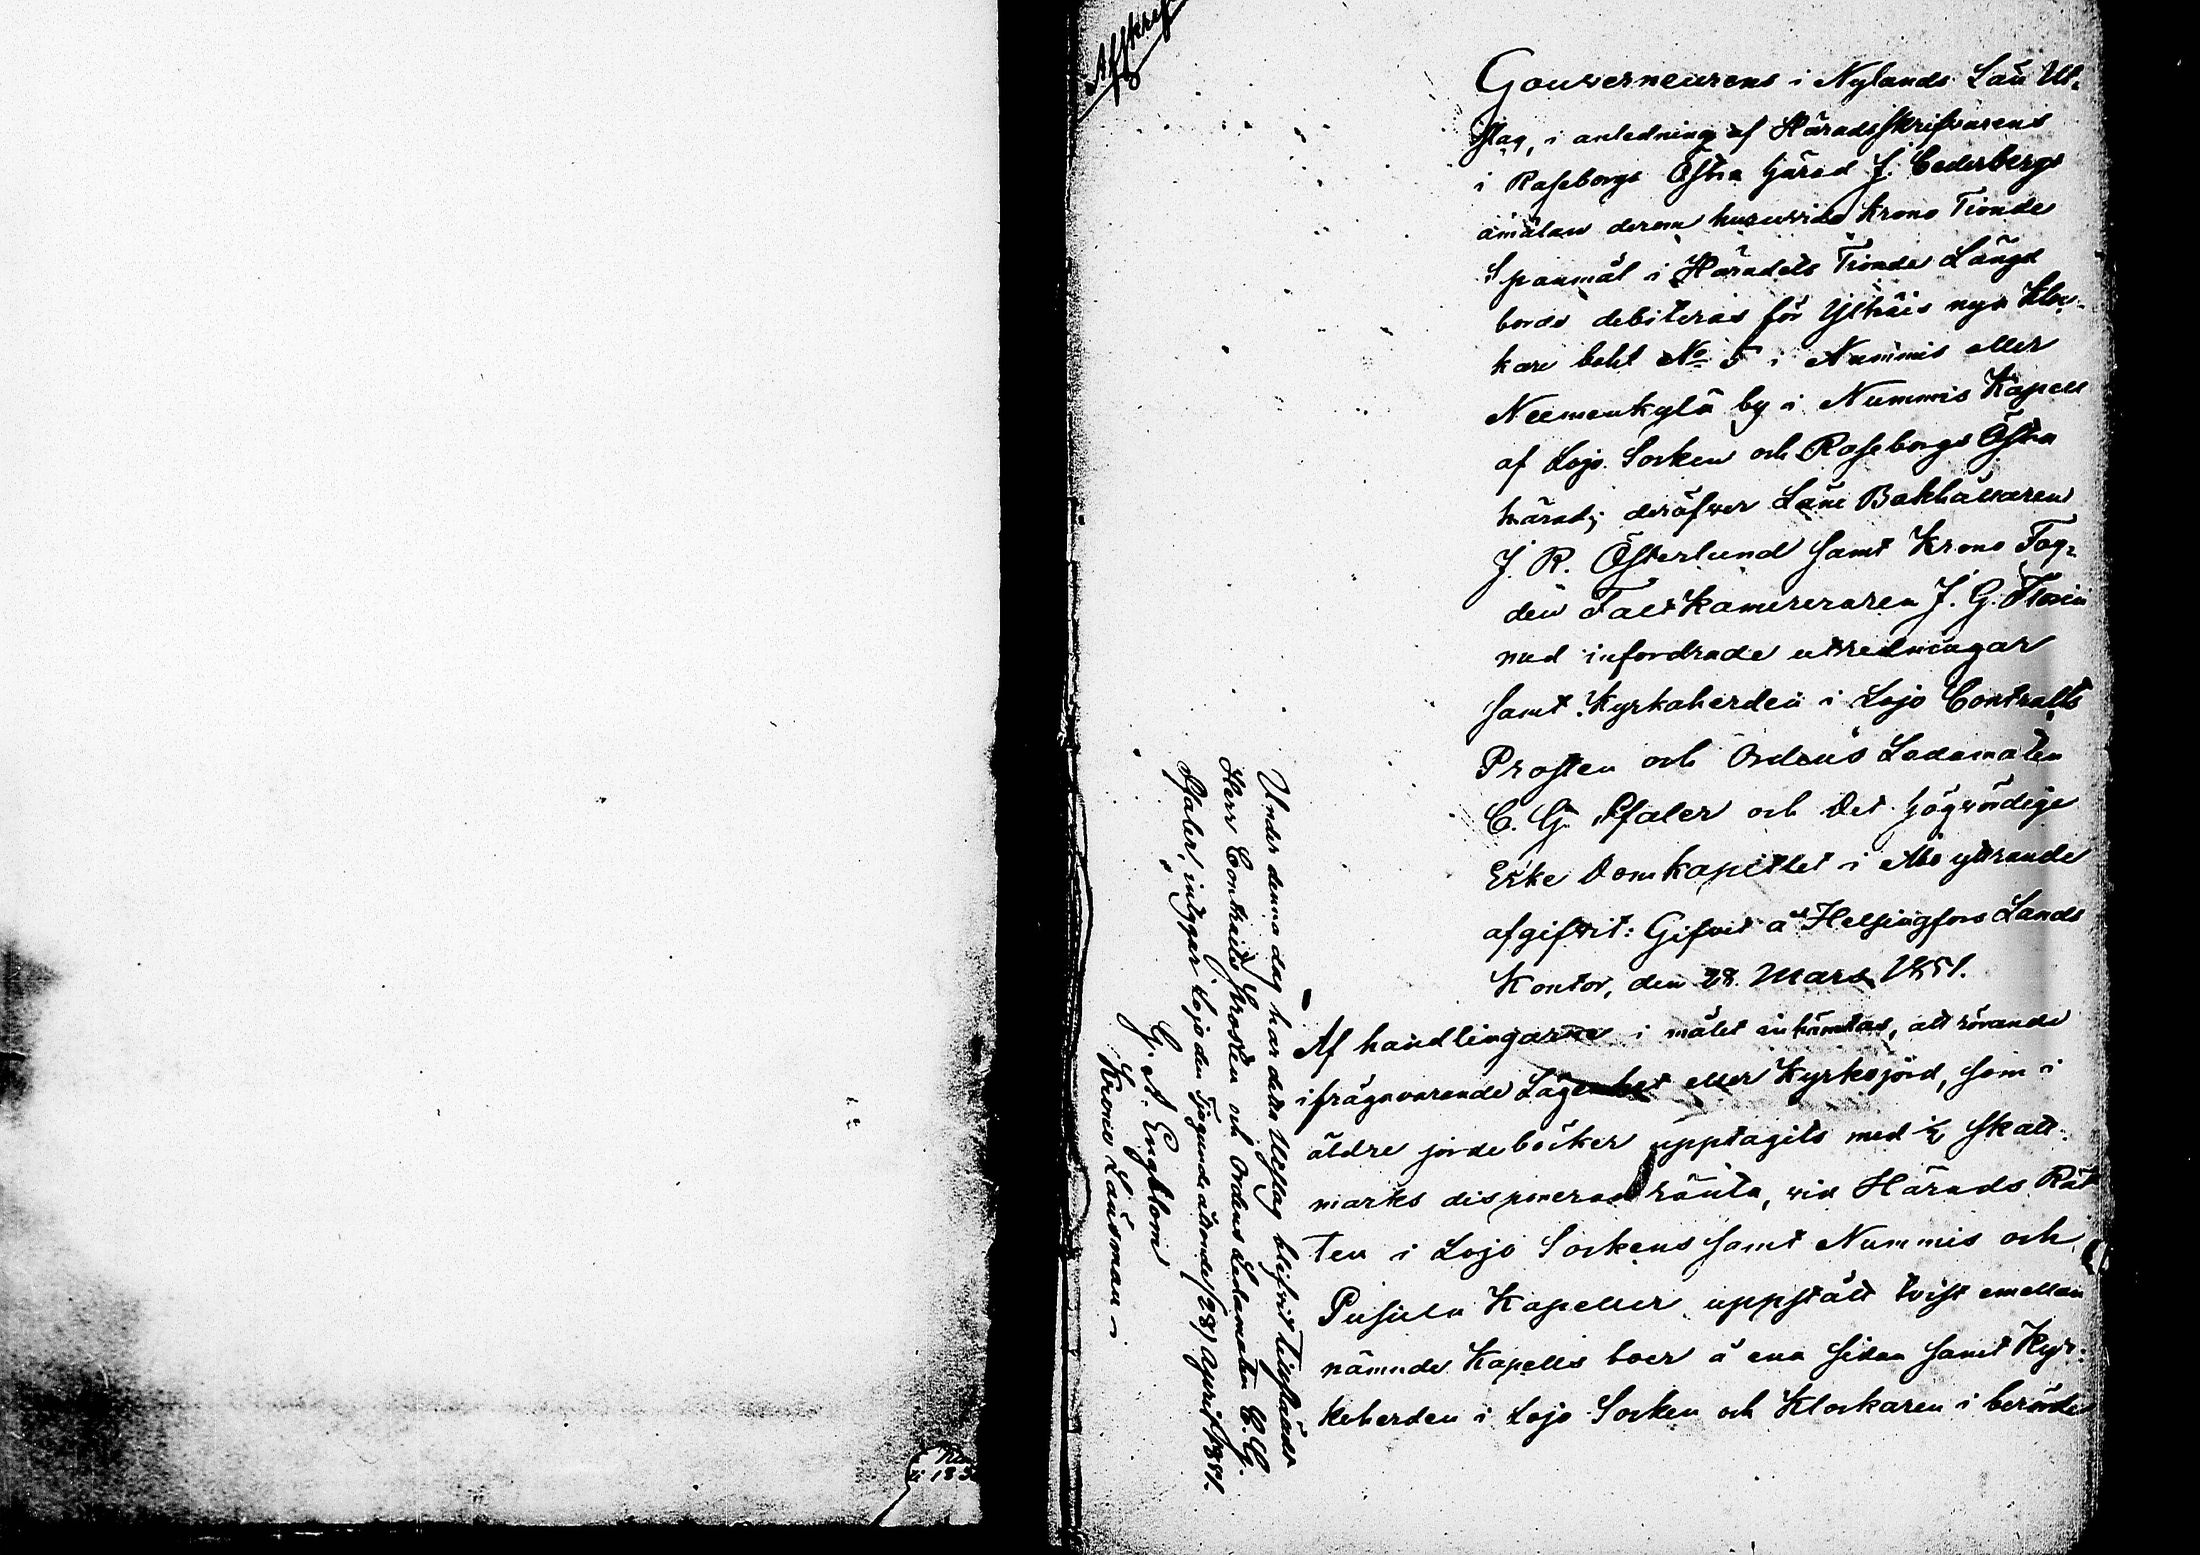 Afskrift
Gouverneurens i Nylands Län Ut-
slag, i anledning af Häradsskrifvarens
i Raseborgs Östra härad J. Cederbergs
anmälan derom huruvida Krono Tionde
Spanmål i Häradets Tionde Längd
borde debiteras för Ylhäis nya Kloc-
kare bohl No 5 i Nummis eller
Neemenkylä by i Nummis Kapell
af Lojo Socken och Raseborgs Östra
härad; deröfver Läns Bokhållaren
J. R. Österlund samt Krono Fog-
den Fält Kamereraren J. G. Florin
med infordrade utredningar
samt Kyrkoherden i Lojo Contrakts
Prosten och Ordens Ledamoten
C. G. Pfaler och Det högvördige
Erke Domkapitlet i Åbo yttrande
afgifvit: Gifvit å Helsingfors Lands
Kontor, den 28. Mars 1851.
Af handlingarne i målet inhämtas, att rörande
ifrågavarande Lägenhet eller Kyrkojord, som i
äldre jordeböcker upptagits med 1/2 skatt-
marks disponerad ränta, vid Härads Rät
ten i Lojo Sockens samt Nummis och
Pusula Kapeller uppstått tvist emellan
nämnde Kapells boer å ena sidan samt Kyr-
koherden i Lojo Socken och Klockaren i berörde
Under denna dag har detta Utslag blifvit tillstäldt
Herr Contrakts Prosten och Ordens Ledamoten C. G.
Pfaler, intygar Lojo den Tjugundeåttonde (28) April 1851.
G. A. Engblom
Krono Länsman i
i 185